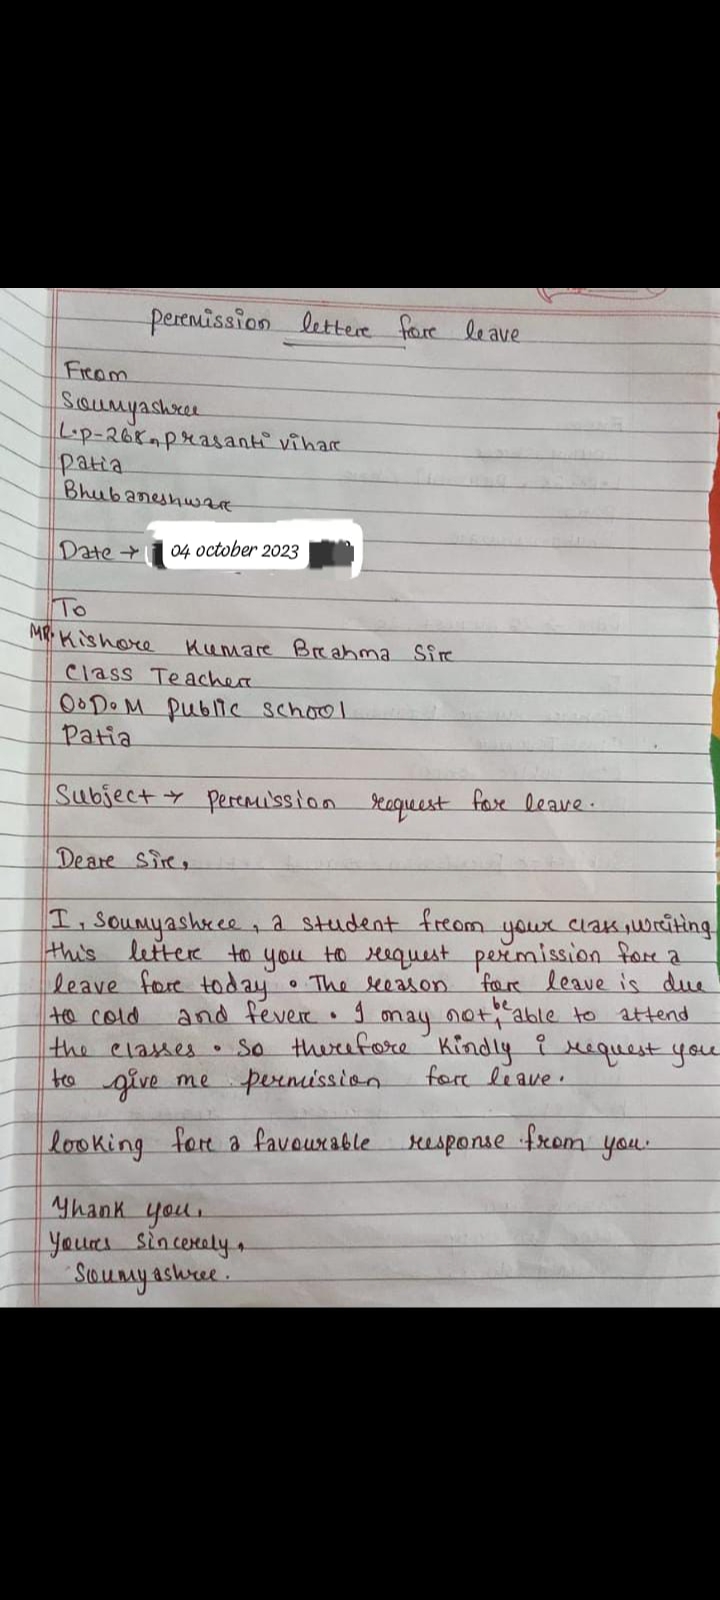 Permission letter for leave
From
Soumyashree
L.p-268, prasanti vihar
Patia
Bhubaneshwar
Date → 04 october 2023
To
MR. Kishore Kumar Brahma Sir
Class Teacher
O.D.M public school
Patia
Subject → permission request for leave.
Dear Sir,
I, Soumyashree, a student from your class, writing
this letter to you to request permission for a
leave for today. The reason for leave is due
to cold and fever. I may not be able to attend
the classes. So therefore kindly i request you
to give me permission for leave.
looking for a favourable response from you.
Thank you,
Yours sincerely,
Soumyashree.